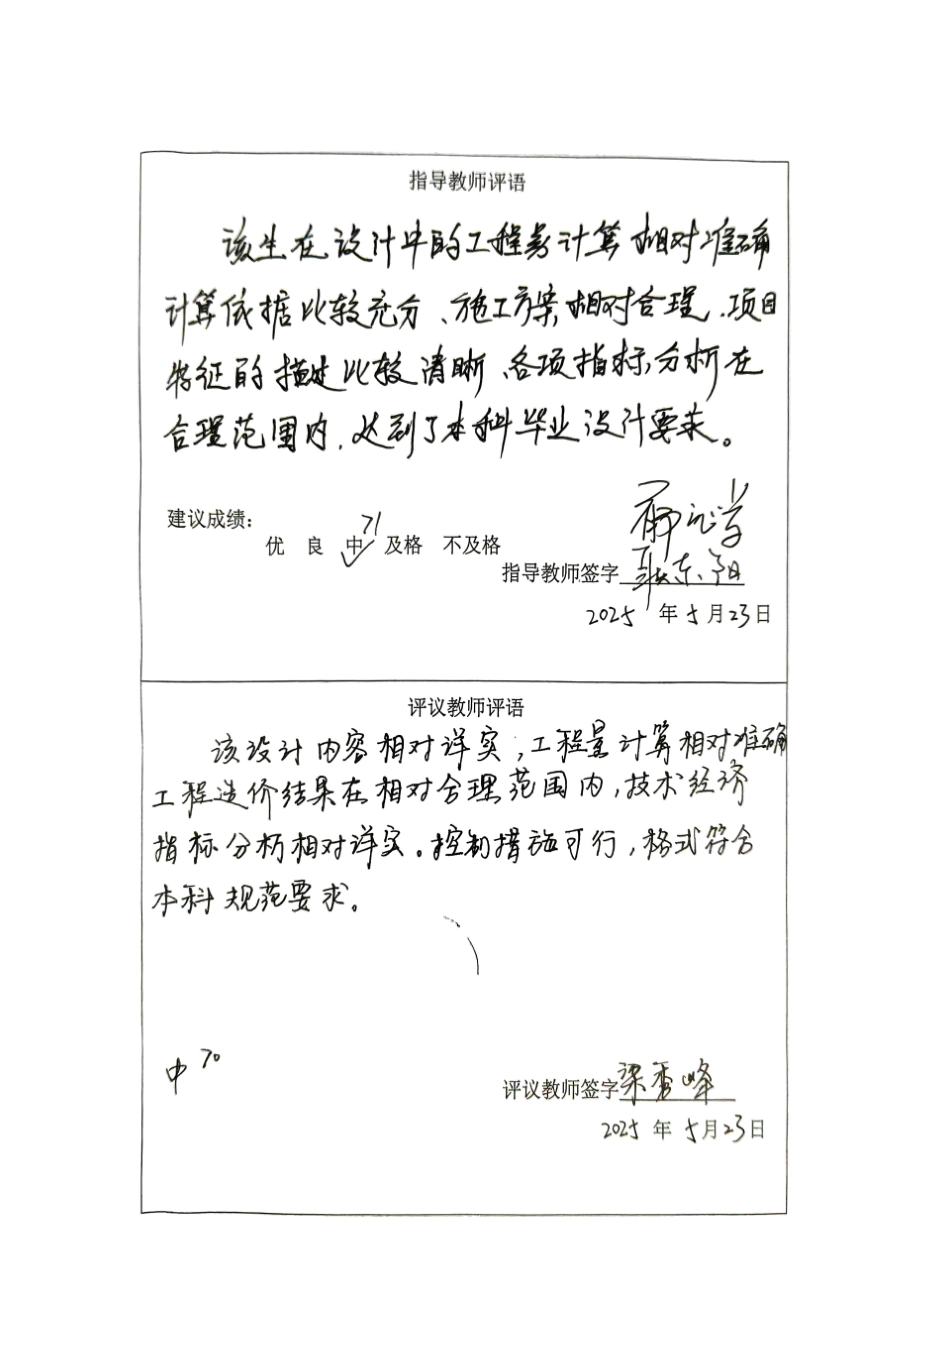 指导教师评语
该生在设计中的工程量计算相对准确
计算依据比较充分、施工方案相对合理、项目
特征的描述比较清晰、各项指标分析在
合理范围内，达到了本科毕业设计要求。
建议成绩：
71
优 良 中✓ 及格 不及格
指导教师签字
2025 年 5 月 23 日
评议教师评语
该设计内容相对详实，工程量计算相对准确
工程造价结果在相对合理范围内，技术经济
指标分析相对详实。控制措施可行，格式符合
本科规范要求。
中 70
评议教师签字 梁秀峰
2025 年 5 月 23 日